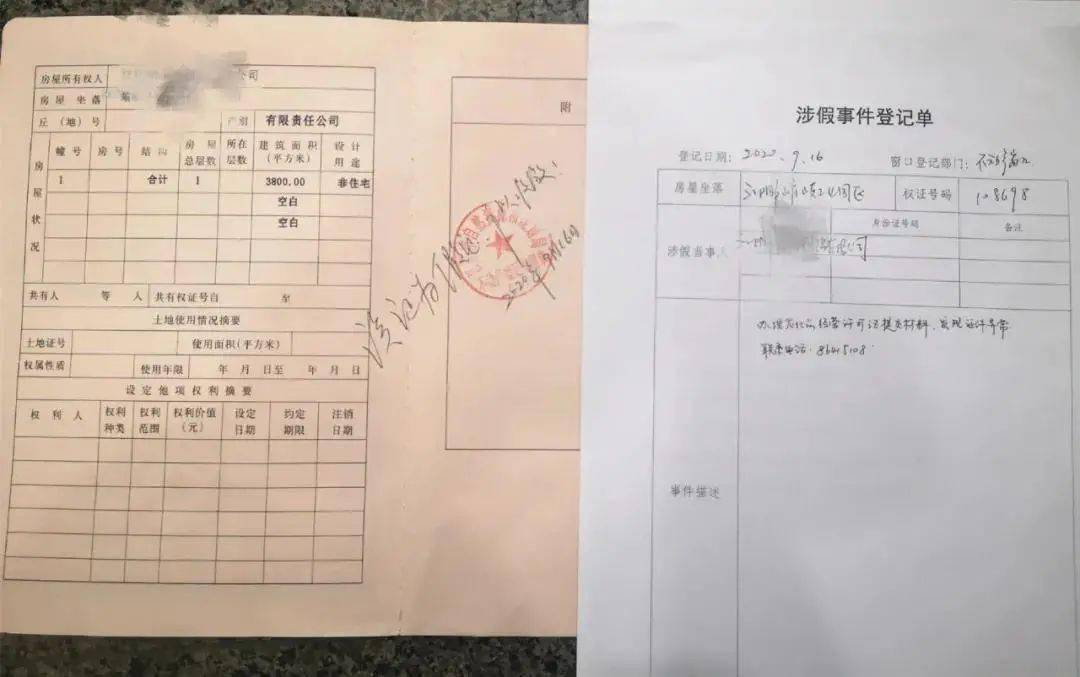 房屋所有权人 公司
房屋坐落
丘（地）号 产别 有限责任公司
房屋状况
幢号 房号 结构 房屋总层数 所在层数 建筑面积（平方米） 设计用途
1 合计 1 3800.00 非住宅
空白
空白
共有人 等 人 共有权证号自 至
土地使用情况摘要
土地证号 使用面积(平方米)
权属性质 使用年限 年 月 日至 年 月 日
设定他项权利摘要
权利人 权利种类 权利范围 权利价值（元） 设定日期 约定期限 注销日期
附
该证为假证
2020年9月16日
涉假事件登记单
登记日期： 2020.9.16 窗口登记部门：
房屋坐落 权证号码 108698
涉假当事人 身份证号码 备注
公司
事件描述
办理危化品经营许可证提交材料，发现证件异常
联系电话：86615108